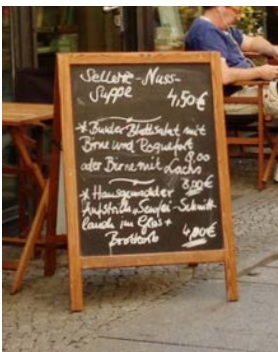 Sellerie-Nuss-
Suppe
4,50€
* Bunter Blattsalat mit
Birne und Roquefort
oder Birne mit Lachs
8,00€
* Hausgemachter
Aufstrich „Senfei-Schnitt-
lauch im Glas +
Brotkorb 4,00€